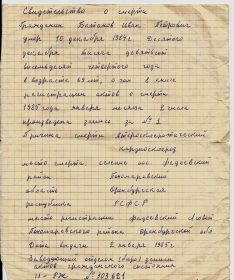 Свидетельство о смерти
Гражданин Иван Петрович
умер 10 декабря 1984г Десятого
декабря тысяча девятьсот
восемьдесят четвертого года
в возрасте 69 лет, о чем в книге
регистрации актов о смерти
1985 года января месяца 2 числа
произведена запись за № 1
Причина смерти Атеросклеротический
кардиосклероз
место смерти: селение
район Пономаревский
область Оренбургская
республика РСФСР
место регистрации
Пономаревского района Оренбургской обл
Дата выдачи 2 января 1985г.
Заведующий отделом (бюро) записи
актов гражданского состояния
№ 303621